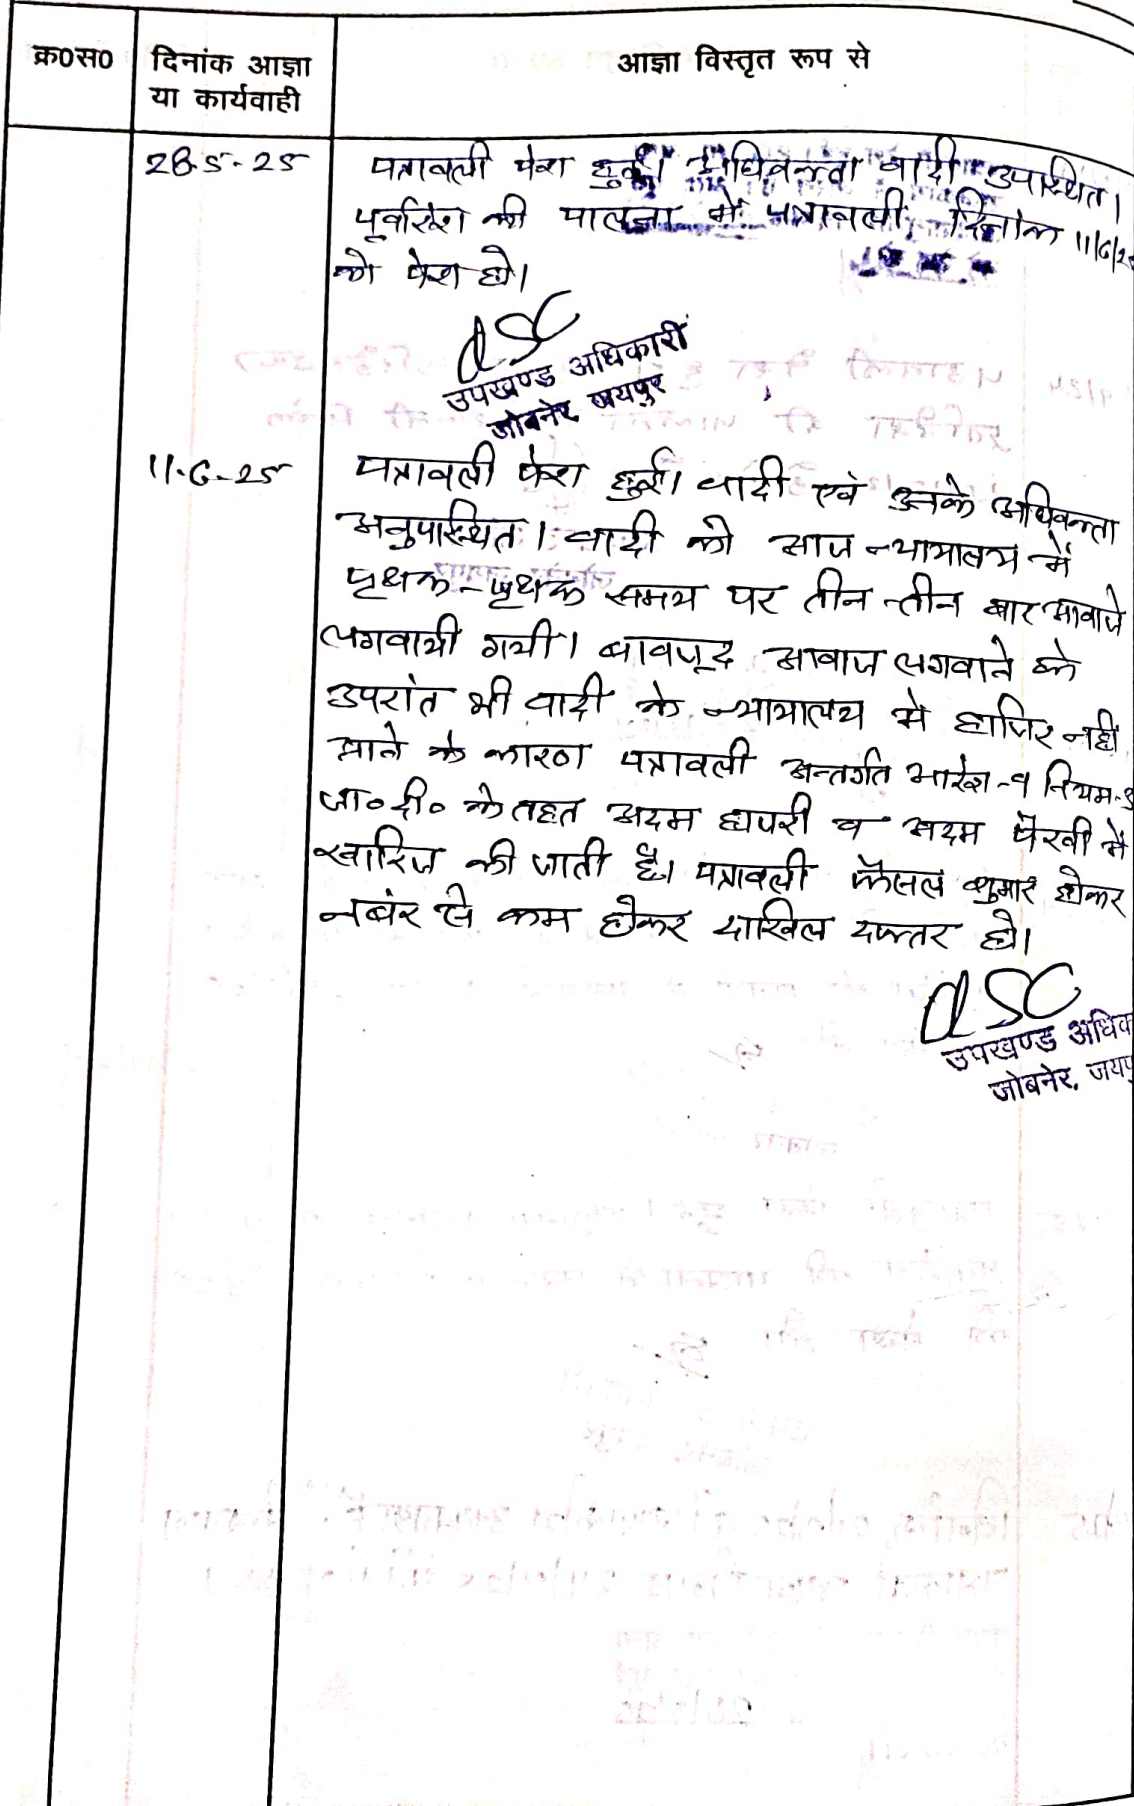 क्र0स0
दिनांक आज्ञा
या कार्यवाही
आज्ञा विस्तृत रूप से
28-5-25
पत्रावली पेश हुई। अधिवक्ता वादी उपस्थित।
पूर्वादेश की पालना में पत्रावली दिनांक 11/6/25
को पेश हो।
उपखण्ड अधिकारी
जोबनेर, जयपुर
11-6-25
पत्रावली पेश हुई। वादी एवं उनके अधिवक्ता
अनुपस्थित। वादी को आज न्यायालय में
पृथक-पृथक समय पर तीन-तीन बार आवाजे
लगवायी गयी। बावजूद आवाज लगवाने के
उपरांत भी वादी के न्यायालय मे हाजिर नहीं
आने के कारण पत्रावली अन्तर्गत आदेश-9 नियम-
जा० दी० के तहत अदम हाजरी व अदम पैरवी में
खारिज की जाती है। पत्रावली फैसल शुमार होकर
नबंर से कम होकर दाखिल दफ्तर हो।
उपखण्ड अधिक
जोबनेर, जयपु